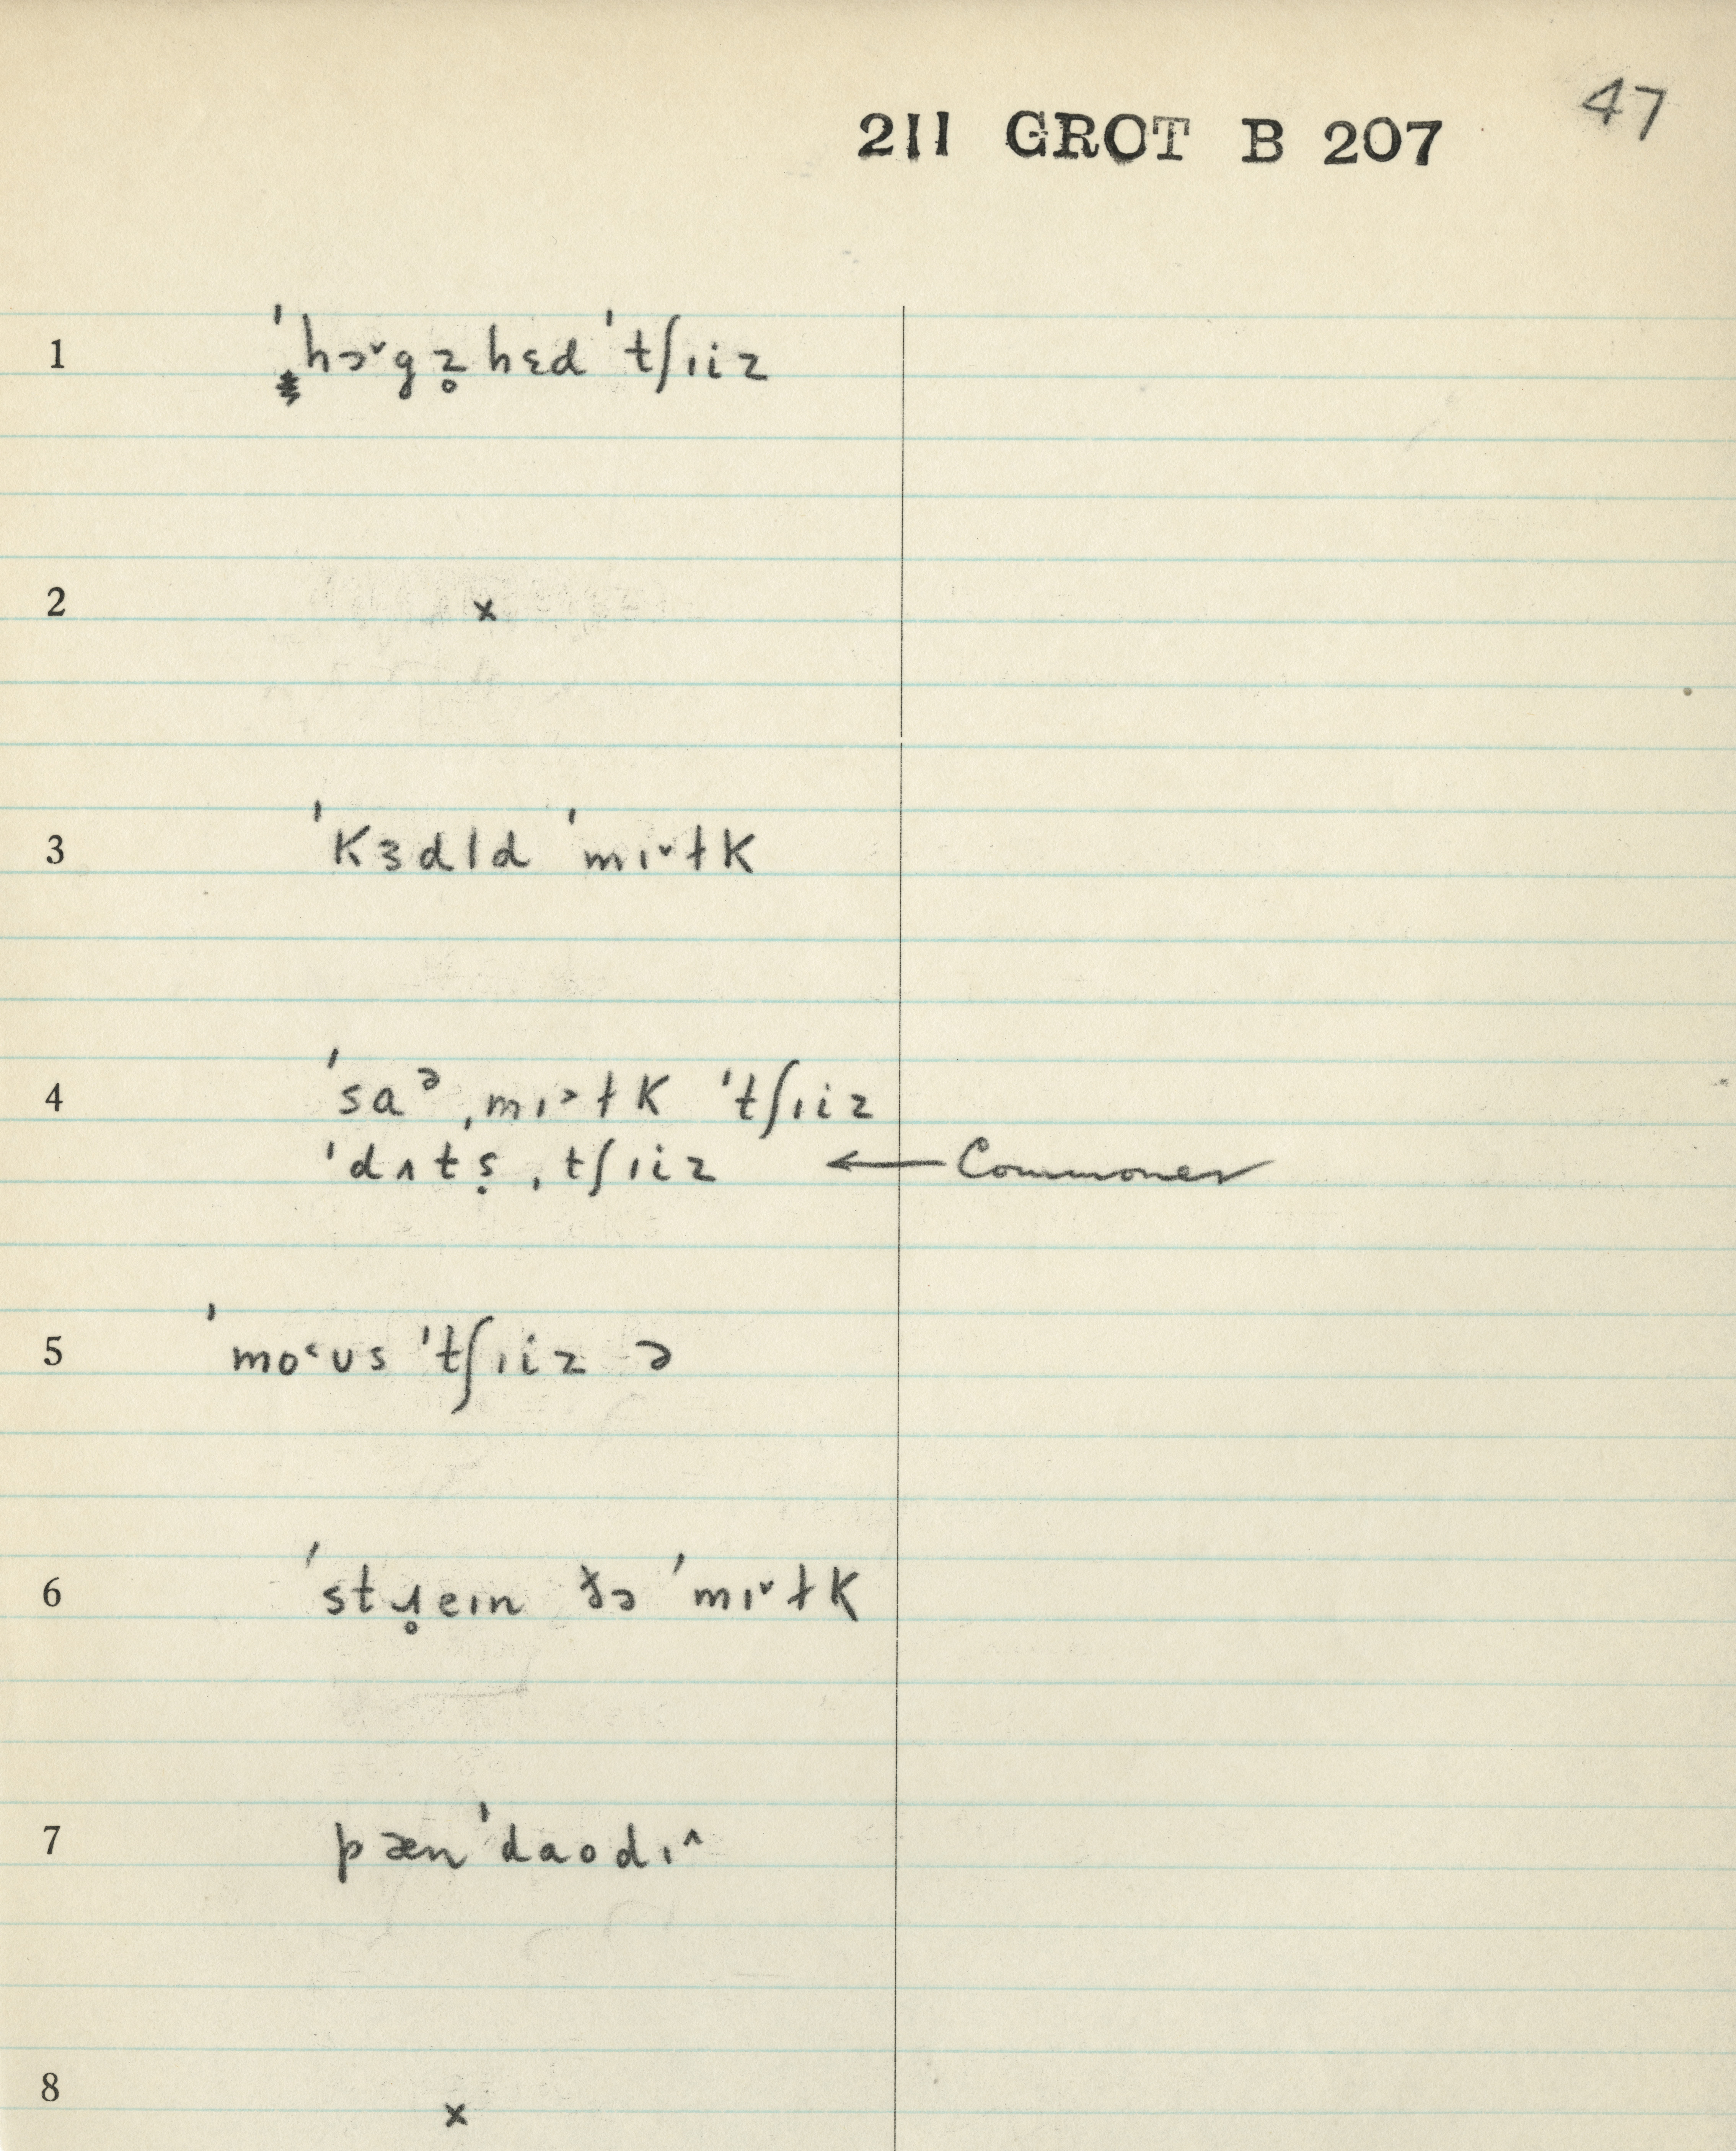 47
211 GROT B 207
1 ˈhɔ˅gz̥ hɛd ˈtʃɪiz
2 x
3 ˈkɜdld ˈmɪ˅ɫk
4 ˈsaᵊ ˌmɪ˃ɫk ˈtʃɪiz
ˈdʌtṣ ˌtʃɪiz ← Commoner
5 ˈmo˂ʊs ˈtʃɪiz ə
6 ˈstɹ̥eɪn ðə ˈmɪ˅ɫk
7 pænˈdaodɪ˄
8 x